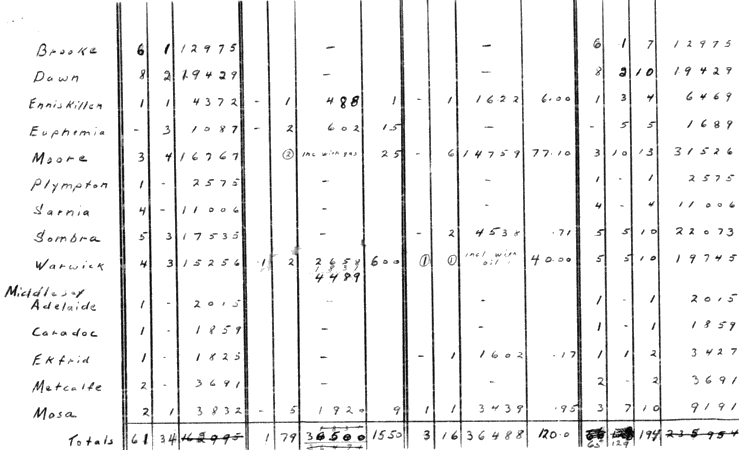 Brooke 6 1 12975 - - 6 1 7 12975
Dawn 8 2 19429 - - 8 2 10 19429
Enniskillen 1 1 4372 - 1 488 1 - 1 1622 6.00 1 3 4 6469
Euphemia - 3 1087 - 2 602 15 - - 5 5 1689
Moore 3 4 16767 ② inc with gas 25 - 6 14759 77.10 3 10 13 31526
Plympton 1 - 2575 - - 1 - 1 2575
Sarnia 4 - 11006 - - 4 - 4 11006
Sombra 5 3 17535 - - 2 4538 .71 5 5 10 22073
Warwick 4 3 15256 1 2 2658 600 ① ① incl with oil 40.00 5 5 10 19745
4489
Middlesex
Adelaide 1 - 2015 - - 1 - 1 2015
Caradoc 1 - 1859 - - 1 - 1 1859
Ekfrid 1 - 1825 - - 1 1602 .17 1 1 2 3427
Metcalfe 2 - 3691 - - 2 - 2 3691
Mosa 2 1 3832 - 5 1920 9 1 1 3439 .95 3 7 10 9191
Totals 61 34 162995 1 79 1550 3 16 36488 120.0 194 235954
65 129